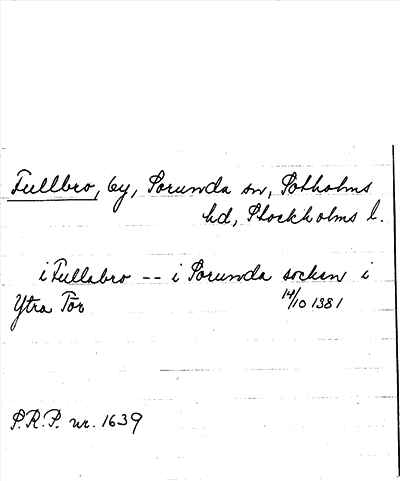 Fullbro, by, Sorunda sn, Sotholms
hd, Stockholms l.
i Fullabro -- i Sorunda sockan i
Ytra Tör
14/10 1381
S.R.P. nr. 1639